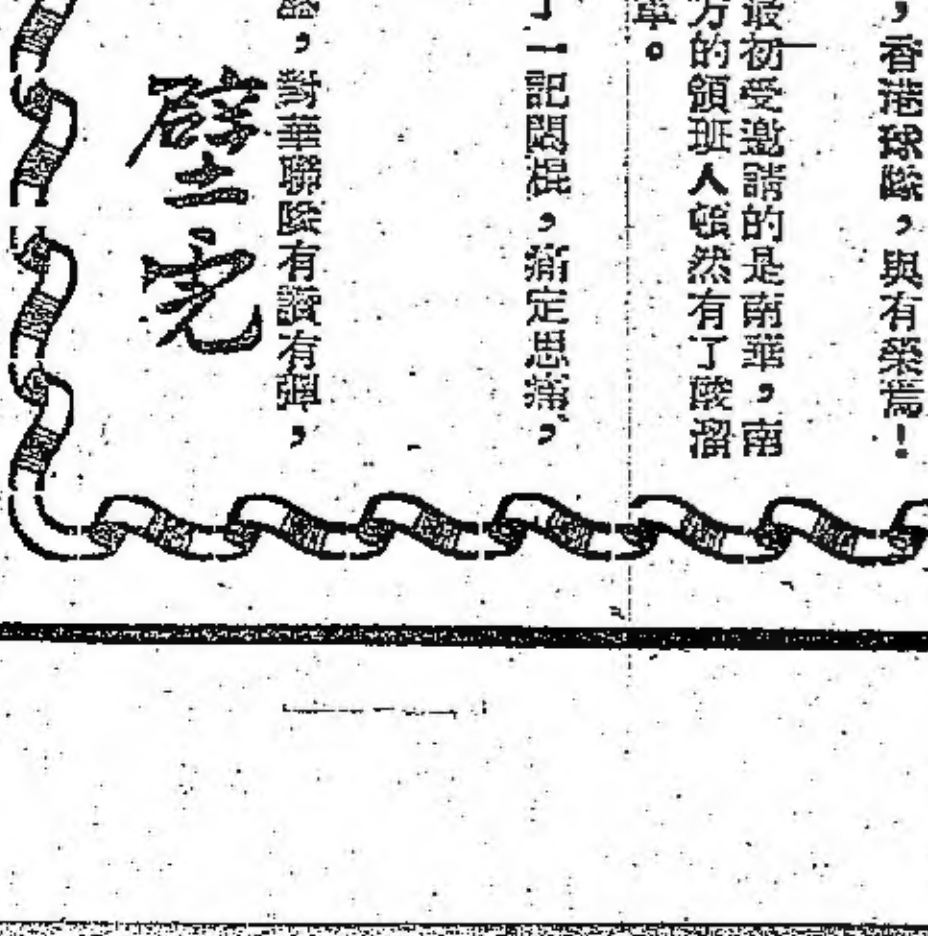 ，香港球隊，與有榮焉！
最初受邀請的是南華，南
方的領班人頓然有了酸溜
單。
了一記悶棍，痛定思痛，
對華聯隊有讚有彈，
壁完